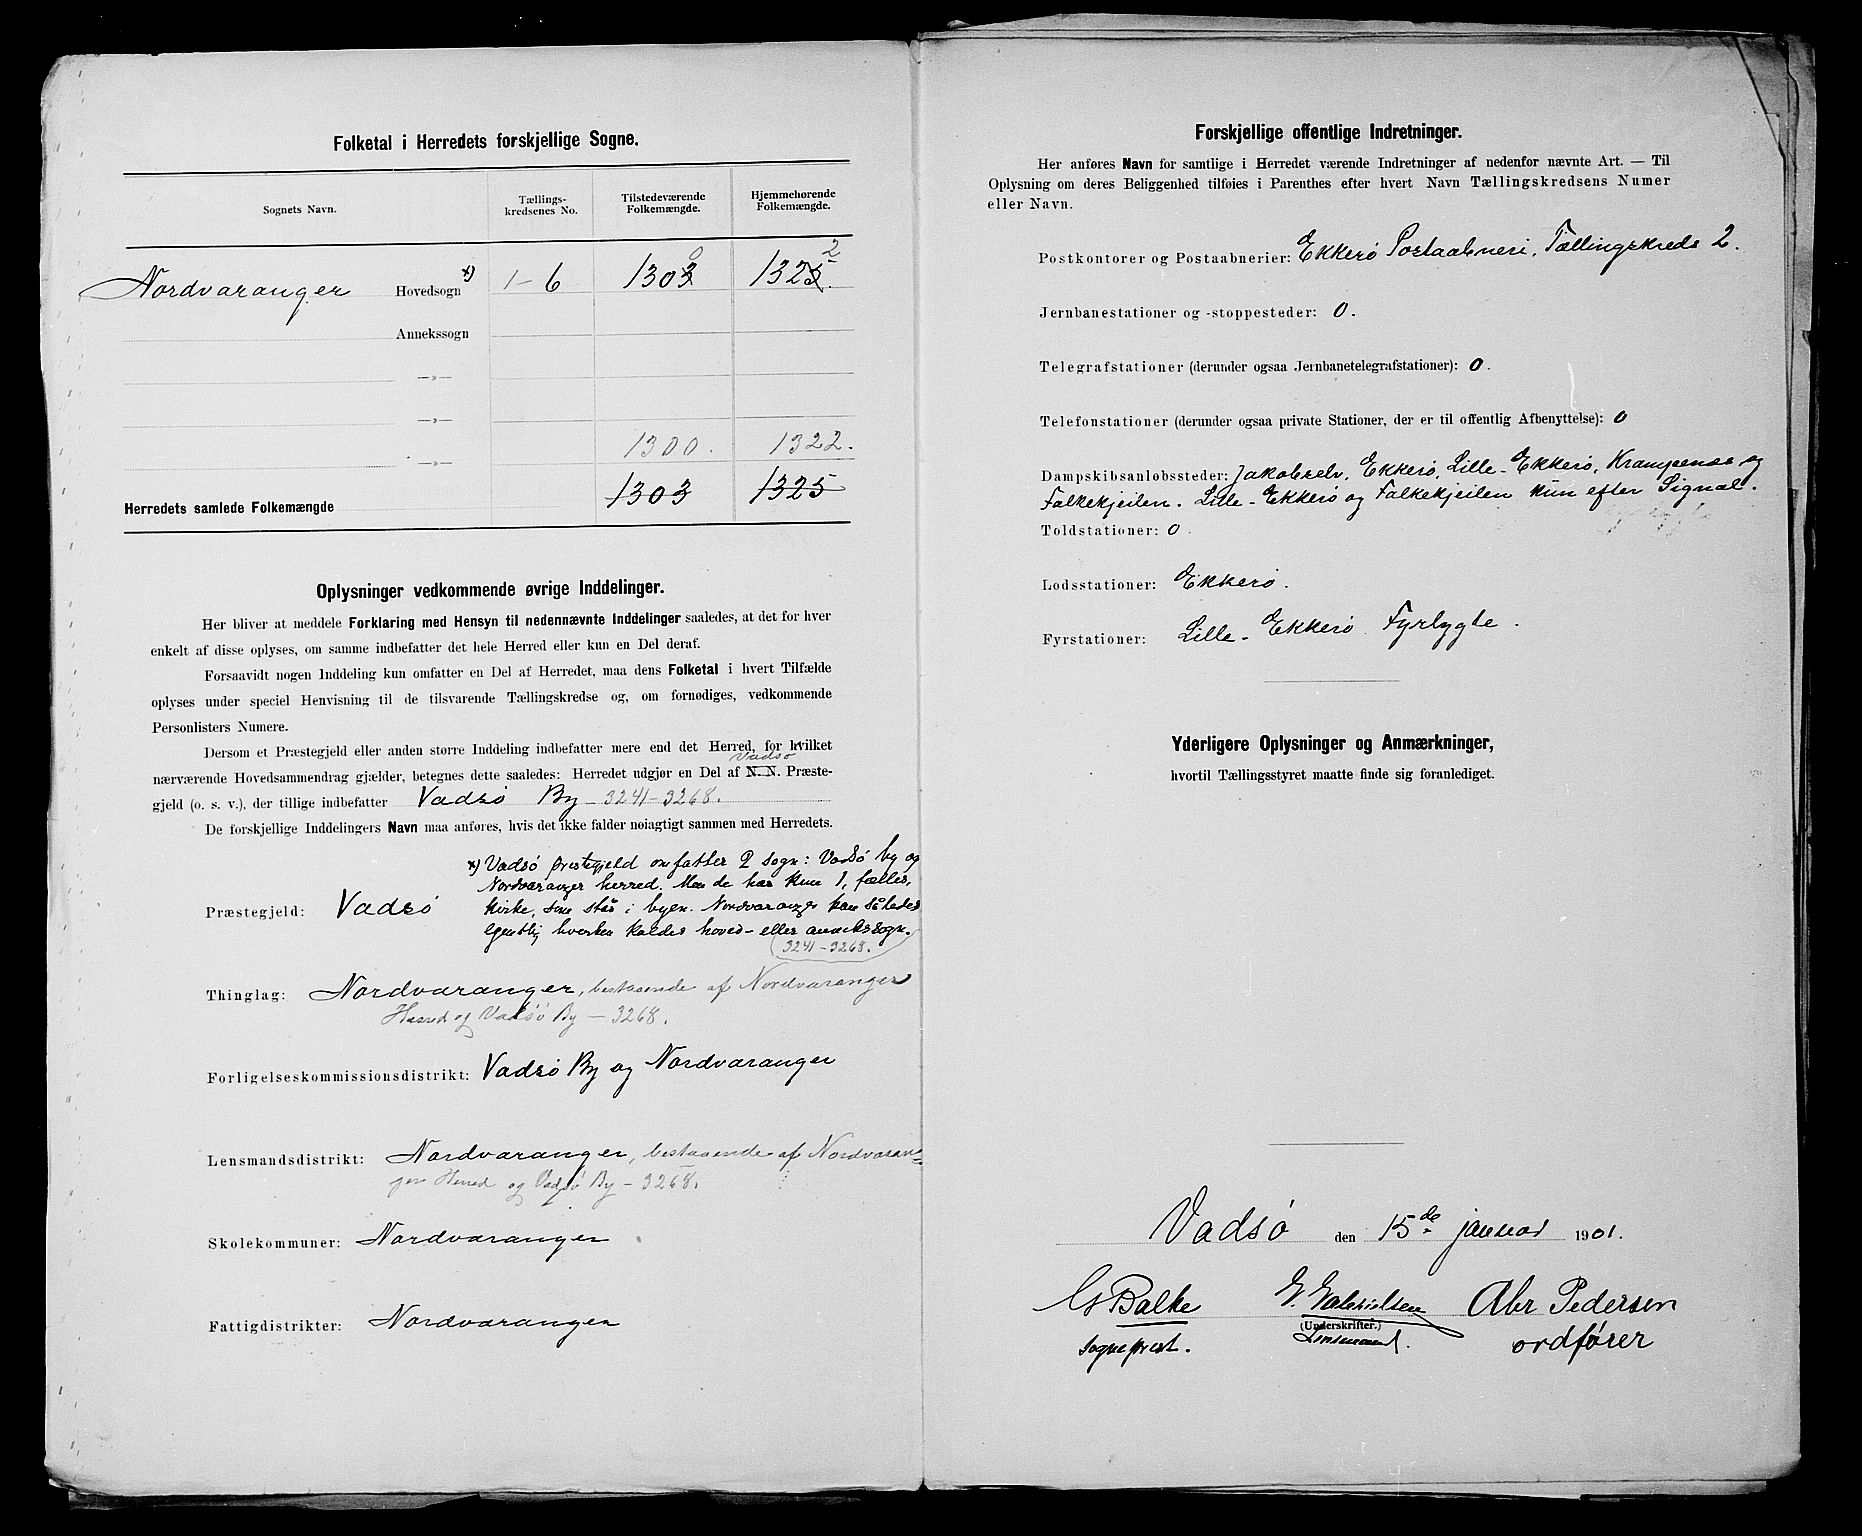 Folketal i Herredets forskjellige Sogne.
Sognets Navn.
Tællings-
kredsenes No.
Tilstedeværende
Folkemængde.
Hjemmehørende
Folkemængde.
Nordvaranger Hovedsogn x) 1-6 1303 0 1325. 2
Annekssogn
—»—
—»—
1300. 1322.
—»—
Herredets samlede Folkemængde 1303 1325
Oplysninger vedkommende øvrige Inddelinger.
Her bliver at meddele Forklaring med Hensyn til nedennævnte Inddelinger saaledes, at det for hver
enkelt af disse oplyses, om samme indbefatter det hele Herred eller kun en Del deraf.
Forsaavidt nogen Inddeling kun omfatter en Del af Herredet, maa dens Folketal i hvert Tilfælde
oplyses under speciel Henvisning til de tilsvarende Tællingskredse og, om fornødiges, vedkommende
Personlisters Numere.
Dersom et Præstegjeld eller anden større Inddeling indbefatter mere end det Herred, for hvilket
Vadsø
nærværende Hovedsammendrag gjælder, betegnes dette saaledes: Herredet udgjør en Del af N. N. Præste-
gjeld (o. s. v.), der tillige indbefatter Vadsø By - 3241-3268.
De forskjellige Inddelingers Navn maa anføres, hvis det ikke falder nøiagtigt sammen med Herredets.
x) Vadsø prestegjeld omfatter 2 sogn: Vadsø by og
Nordvaranger herred. Men de har kun 1, fælles,
Præstegjeld: Vadsø kirke, som står i byen. Nordvaranger kan således
egentlig hverken kaldes hoved- eller annekssogn.
(3241-3268.)
Thinglag: Nordvaranger, bestaaende af Nordvaranger
Herred og Vadsø By - 3268.
Forligelseskommissionsdistrikt: Vadsø By og Nordvaranger
Lensmandsdistrikt: Nordvaranger, bestaaende af Nordvaran=
ger Herred og Vadsø By - 3268.
Skolekommuner: Nordvaranger
Fattigdistrikter: Nordvaranger
Forskjellige offentlige Indretninger.
Her anføres Navn for samtlige i Herredet værende Indretninger af nedenfor nævnte Art. — Til
Oplysning om deres Beliggenhed tilføies i Parenthes efter hvert Navn Tællingskredsens Numer
eller Navn.
Postkontorer og Postaabnerier: Ekkerø Postaabneri, Tællingskreds 2.
Jernbanestationer og -stoppesteder: 0.
Telegrafstationer (derunder ogsaa Jernbanetelegrafstationer): 0.
Telefonstationer (derunder ogsaa private Stationer, der er til offentlig Afbenyttelse): 0
Dampskibsanløbssteder: Jakobselv, Ekkerø, Lille-Ekkerø, Krampenæs og
Falkekjeilen. Lille-Ekkerø og Falkekjeilen kun efter Signal.
Toldstationer: 0
Lodsstationer: Ekkerø.
Fyrstationer: Lille-Ekkerø Fyrlygte.
Yderligere Oplysninger og Anmærkninger,
hvortil Tællingsstyret maatte finde sig foranlediget.
Vadsø den 15de januar 1901.
G Balke E. Gabrielsen Abr Pedersen
(Underskrifter.)
sogneprest. Lensmand. ordfører